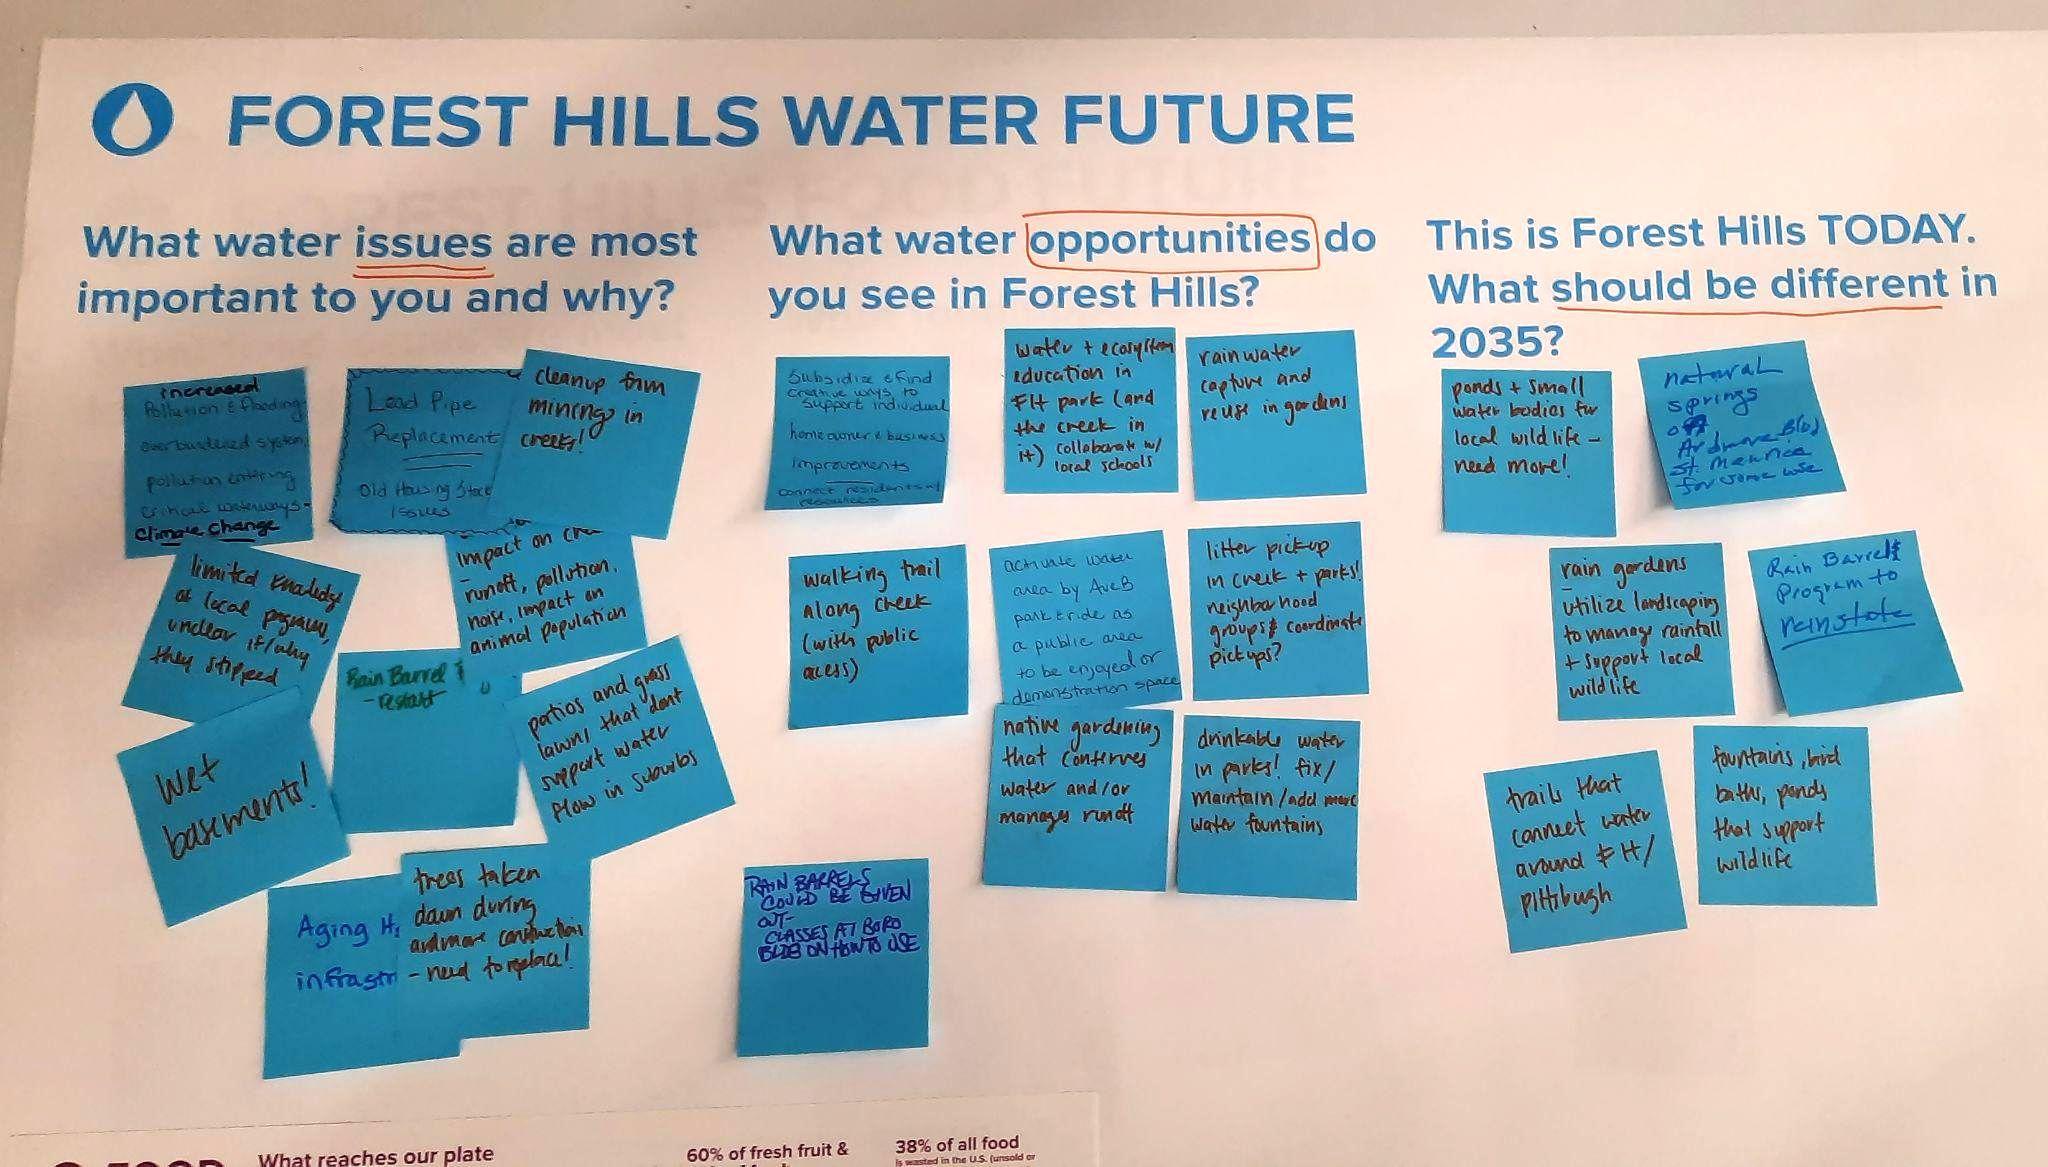 FOREST HILLS WATER FUTURE
What water issues are most
important to you and why?
increased
Pollution & flooding-
overburdened system,
pollution entering
critical waterways-
Climate Change
Lead Pipe
Replacement
Old Housing Stock
Issues
cleanup from
mining in
creeks!
limited knowledge
of local programs,
unclear if/why
they stopped
impact on
runoff, pollution,
noise, impact on
animal population
Rain Barrel
- restart
patios and grass
lawns that dont
support water
flow in suburbs
Wet
basements!
Aging
infrastr
trees taken
down during
ardmore construction
- need to replace!
What water opportunities do
you see in Forest Hills?
Subsidize & find
creative ways to
support individual
homeowner & business
improvements
connect residents w/
resources
water + ecosystem
education in
FH park (and
the creek in
it) collaborate w/
local schools
rainwater
capture and
reuse in gardens
walking trail
along creek
(with public
acess)
activate water
area by AveB
park & ride as
a public area
to be enjoyed or
demonstration space
litter pickup
in creek + parks!
neighborhood
groups coordinate
pickups?
native gardening
that conserves
water and/or
manages runoff
drinkable water
in parks! fix/
maintain/add more
water fountains
RAIN BARRELS
COULD BE GIVEN
OUT-
CLASSES AT BORO
BLDG ON HOW TO USE
This is Forest Hills TODAY.
What should be different in
2035?
ponds + small
water bodies for
local wildlife -
need more!
natural
springs
off
Ardmore Blvd
St. Maurice
for some use
rain gardens
- utilize landscaping
to manage rainfall
+ support local
wildlife
Rain Barrels
Program to
reinstate
trails that
connect water
around FH/
pittsbugh
fountains, bird
baths, ponds
that support
wildlife
FOOD
What reaches our plate
60% of fresh fruit &
38% of all food
is wasted in the U.S. (unsold or